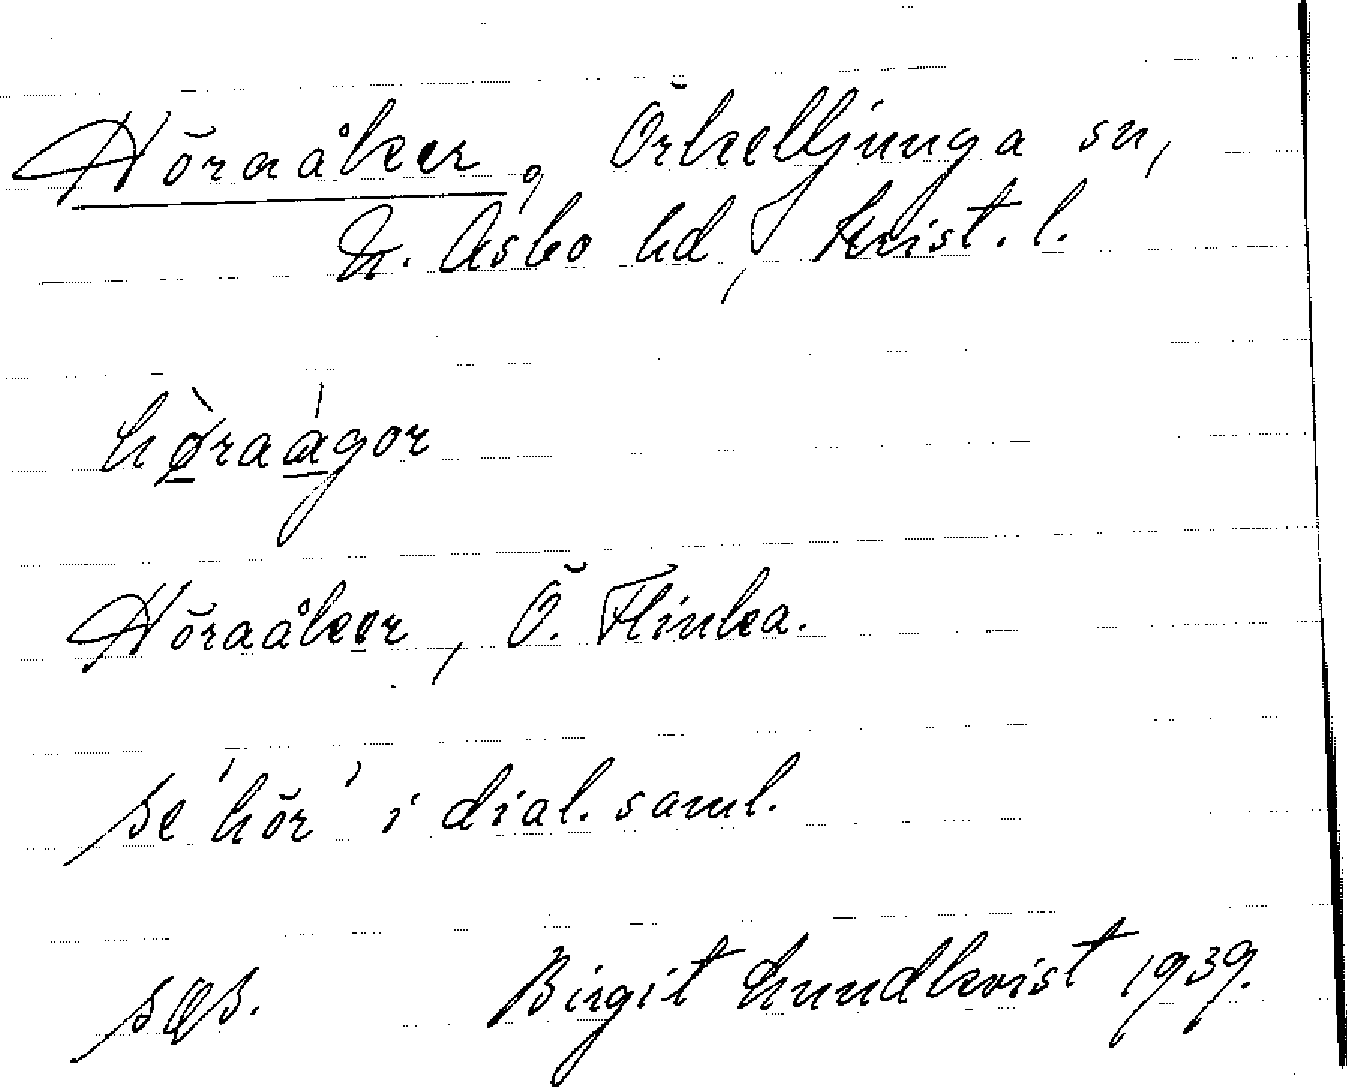 Höraåker, Örkelljunga sn,
N. Åsbo hd, Krist. l.
hø̀raágor
Höraåker, Ö. Flinka.
se 'hör' i dial. saml.
Birgit Lundkvist 1939.